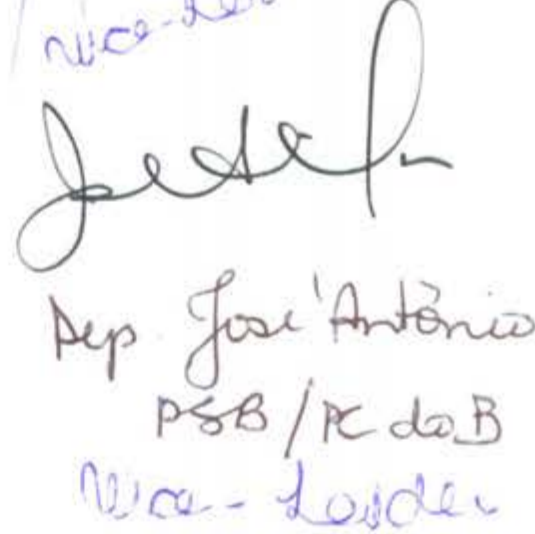 Vice-
Dep. José Antônio
PSB/PC do B
Vice-Lorder